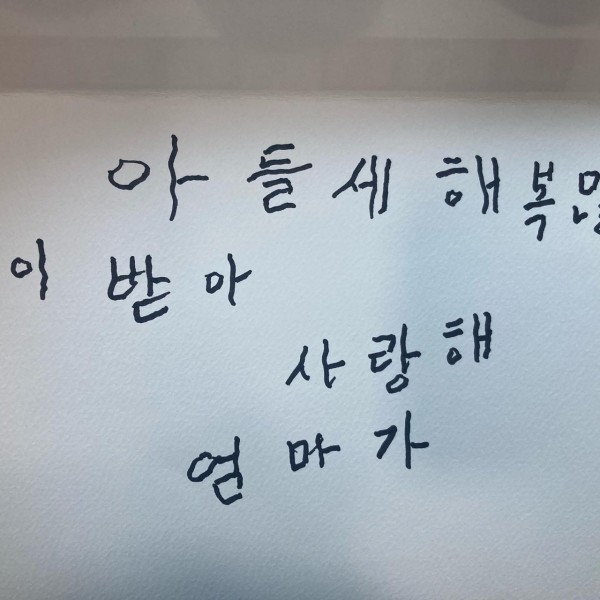 아들 세해 복 많
이 받아
사랑해
엄마가